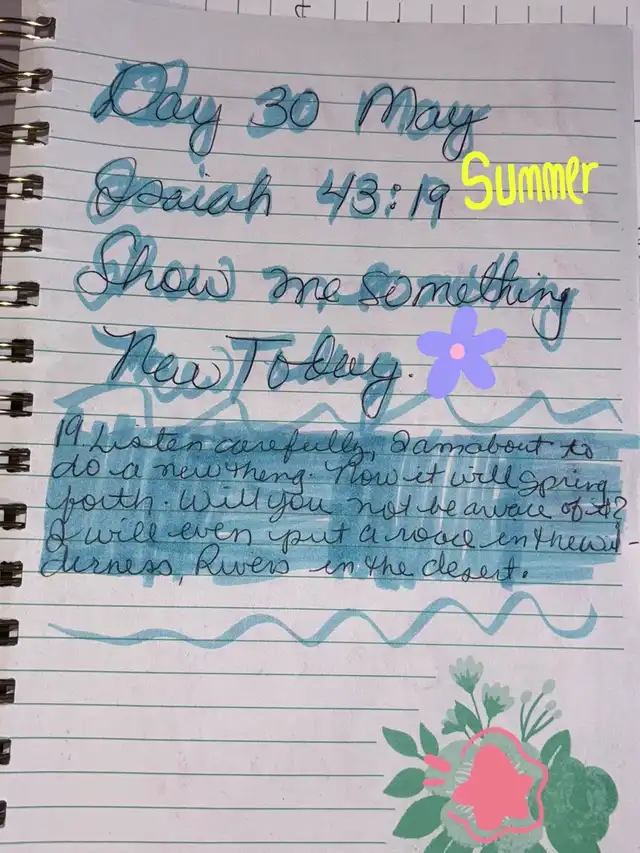 Day 30 May
Isaiah 43:19
Summer
Show me something
New Today.
19 Listen carefully, I am about to
do a new thing. Now it will spring
forth. Will you not be aware of it?
I will even put a road in the wil-
derness, Rivers in the desert.